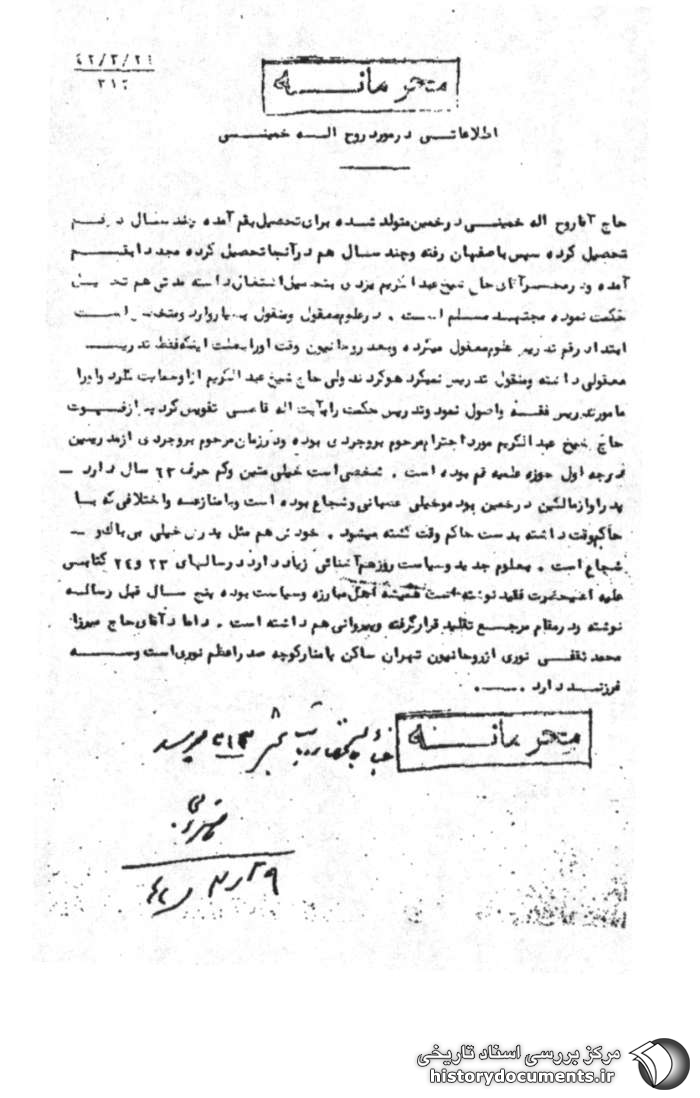 ۴۲/۳/۲۹
۳۱۲
محرمانه
اطلاعاتی در مورد روح اله خمینی
حاج آقا روح اله خمینی در خمین متولد شده برای تحصیل بقم آمده چند سال در قم
تحصیل کرده سپس باصفهان رفته و چند سال هم در آنجا تحصیل کرده مجددا بقم
آمده و در محضر آقای حاج شیخ عبدالکریم یزدی بتحصیل اشتغال داشته مدتی هم تحصیل
حکمت نموده مجتهد مسلم است . در علوم معقول و منقول بسیار وارد و متخصص است
ابتدا در قم تدریس علوم معقول میکرده و بعد روحانیون وقت اورا بعلت اینکه فقط تدریس
معقولی داشته و منقول تدریس نمیکرد هو کردند ولی حاج شیخ عبدالکریم از او حمایت کرد و اورا
مامور تدریس فقه و اصول نمود و تدریس حکمت را بآیت اله تفویض کرد بعد از فوت
حاج شیخ عبدالکریم مورد احترام مرحوم بروجردی بوده و در زمان مرحوم بروجردی از مدرسین
درجه اول حوزه علمیه قم بوده است . شخصی است خیلی متین و کم حرف ۶۳ سال دارد –
پدر او از مالکین در خمین بوده و خیلی عصبانی و شجاع بوده است و با منازعه و اختلافی که با
حاکم وقت داشته بدست حاکم وقت کشته میشود . خودش هم مثل پدرش خیلی بی باک و –
شجاع است . بعلوم جدید و سیاست روز هم آشنائی زیاد دارد در سالهای ۲۳ و ۲۴ کتابی
علیه اعلیحضرت فقید نوشته است همیشه اهل مبارزه و سیاست بوده پنج سال قبل رساله
نوشته و در مقام مرجع تقلید قرار گرفته و پیروانی هم داشته است . داماد آقای حاج میرزا
محمد ثقفی نوری از روحانیون تهران ساکن پامنار کوچه صدر اعظم نوری است و سه
فرزند دارد .
محرمانه
۲۹ ر ۳ ر ۴۲
مرکز بررسی اسناد تاریخی
historydocuments.ir